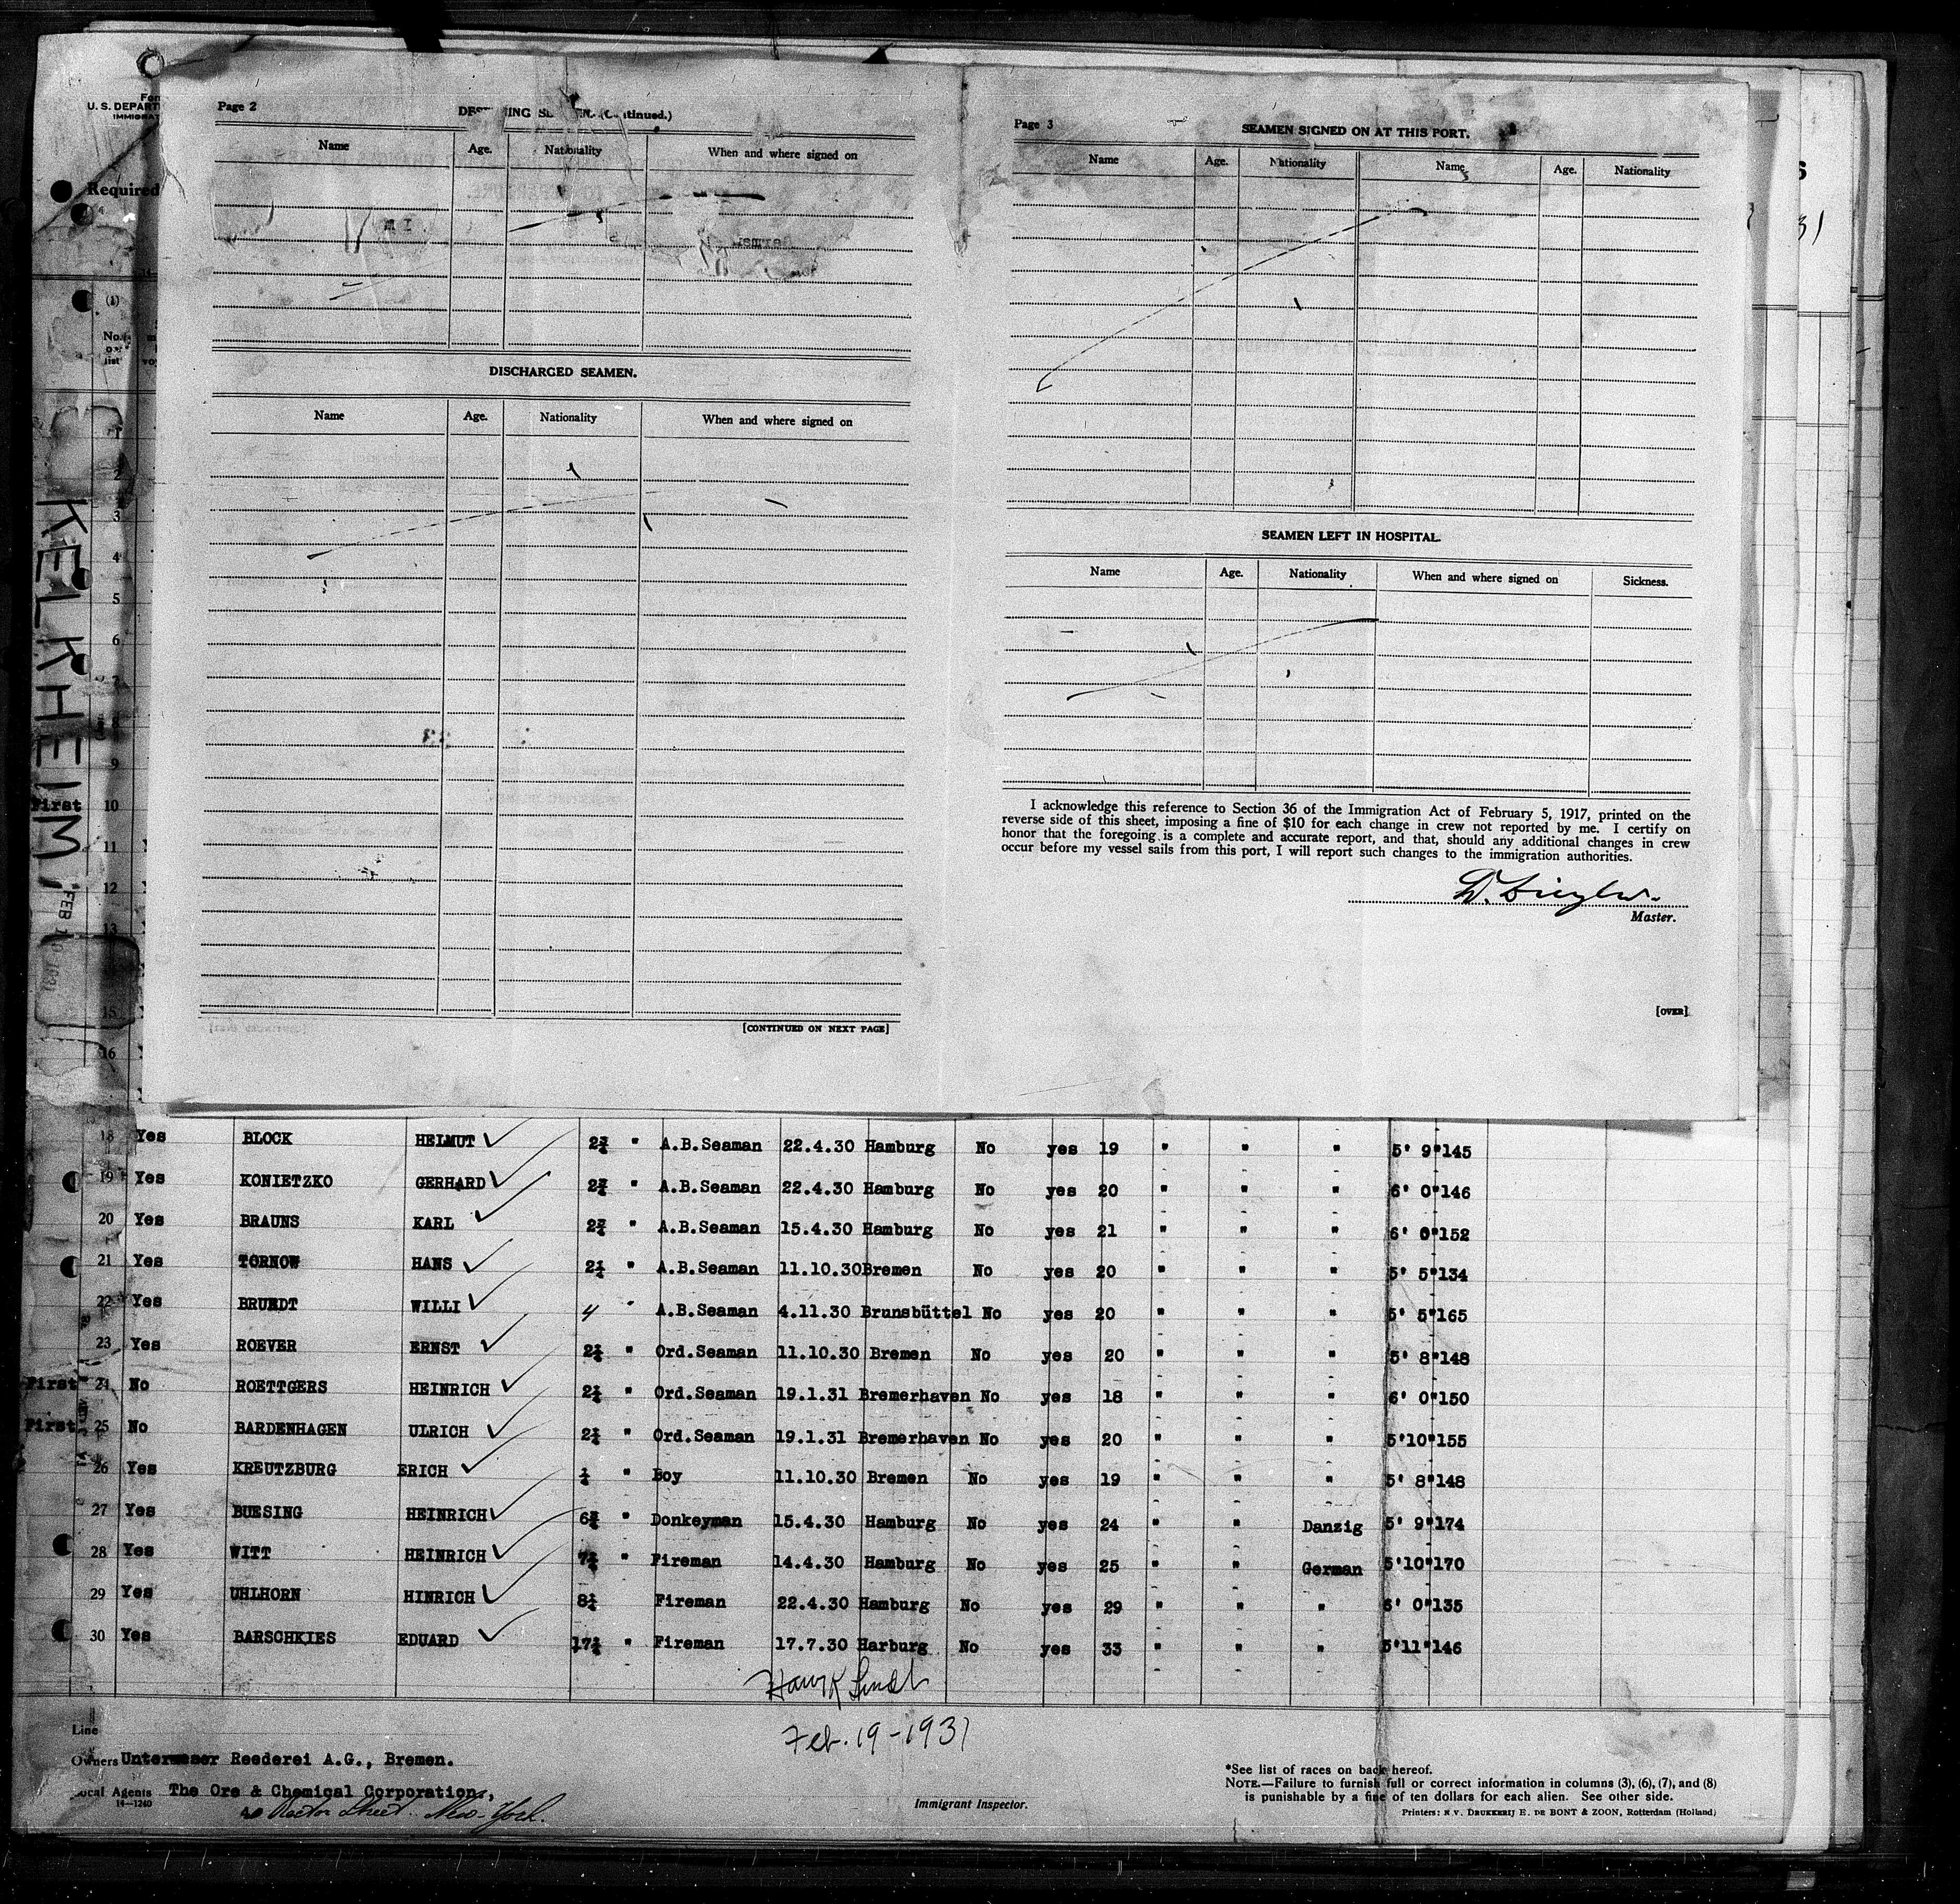 For
U. S. DEPART
IMMIGRAT
Required
(1)
No.
on
list
KELKHEIM
FEB
Page 2
(Continued.)
Name Age. Nationality When and where signed on
DISCHARGED SEAMEN.
Name Age. Nationality When and where signed on
[CONTINUED ON NEXT PAGE]
Page 3
SEAMEN SIGNED ON AT THIS PORT.
Name Age. Nationality Name Age. Nationality
SEAMEN LEFT IN HOSPITAL.
Name Age. Nationality When and where signed on Sickness.
I acknowledge this reference to Section 36 of the Immigration Act of February 5, 1917, printed on the
reverse side of this sheet, imposing a fine of $10 for each change in crew not reported by me. I certify on
honor that the foregoing is a complete and accurate report, and that, should any additional changes in crew
occur before my vessel sails from this port, I will report such changes to the immigration authorities.
Master.
[OVER]
31
2
3
4
5
6
7
8
9
First 10
11
12
13
15
16
18 Yes BLOCK HELMUT " A.B.Seaman 22.4.30 Hamburg No yes 19 " " " 5' 9" 145
19 Yes KONIETZKO GERHARD " A.B.Seaman 22.4.30 Hamburg No yes 20 " " " 6' 0" 146
20 Yes BRAUNS KARL " A.B.Seaman 15.4.30 Hamburg No yes 21 " " " 6' 0" 152
21 Yes TORNOW HANS " A.B.Seaman 11.10.30 Bremen No yes 20 " " " 5' 5" 134
22 Yes BRUNDT WILLI 4 " A.B.Seaman 4.11.30 Brunsbüttel No yes 20 " " " 5' 5" 165
23 Yes ROEVER ERNST " Ord.Seaman 11.10.30 Bremen No yes 20 " " " 5' 8" 148
First 24 No ROETTGERS HEINRICH " Ord.Seaman 19.1.31 Bremerhaven No yes 18 " " " 6' 0" 150
First 25 No BARDENHAGEN ULRICH " Ord.Seaman 19.1.31 Bremerhaven No yes 20 " " " 5'10" 155
26 Yes KREUTZBURG ERICH " Boy 11.10.30 Bremen No yes 19 " " " 5' 8" 148
27 Yes BUESING HEINRICH " Donkeyman 15.4.30 Hamburg No yes 24 " " Danzig 5' 9" 174
28 Yes WITT HEINRICH " Fireman 14.4.30 Hamburg No yes 25 " " German 5'10" 170
29 Yes UHLHORN HINRICH " Fireman 22.4.30 Hamburg No yes 29 " " " 6' 0" 135
30 Yes BARSCHKIES EDUARD " Fireman 17.7.30 Harburg No yes 33 " " " 5'11" 146
Feb. 19-1931
Line
Owners Unterweser Reederei A.G., Bremen.
Local Agents The Ore & Chemical Corporation,
14-1240
40 Rector Street. New-York.
Immigrant Inspector.
*See list of races on back hereof.
NOTE.—Failure to furnish full or correct information in columns (3), (6), (7), and (8)
is punishable by a fine of ten dollars for each alien. See other side.
Printers: N.V. DRUKKERIJ E. DE BONT & ZOON, Rotterdam (Holland)